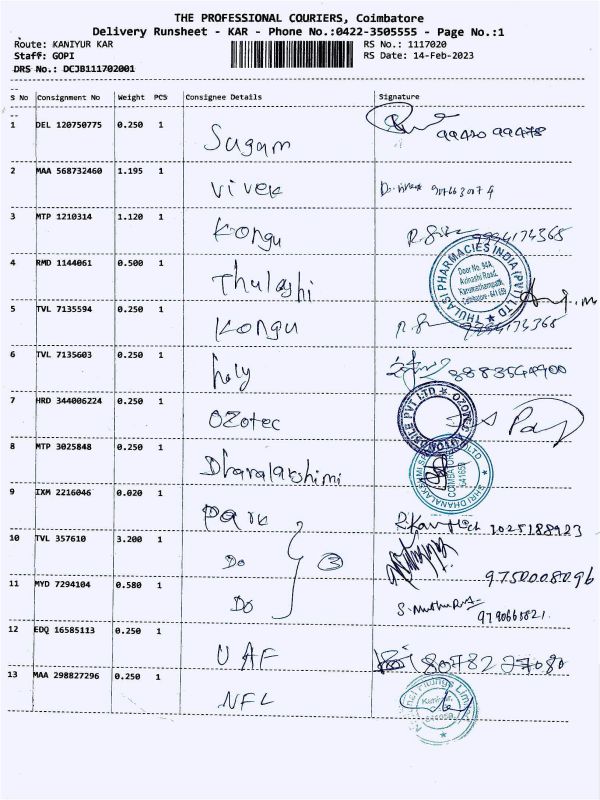 THE PROFESSIONAL COURIERS, Coimbatore
Delivery Runsheet - KAR - Phone No.:0422-3505555 - Page No.:1
Route: KANIYUR KAR
RS No.: 1117020
Staff: GOPI
RS Date: 14-Feb-2023
DRS No.: DCJB111702001
S No Consignment No Weight PCS Consignee Details Signature
1 DEL 120750775 0.250 1 Sugam 99420 99478
2 MAA 568732460 1.195 1 Vivek
3 MTP 1210314 1.120 1 Kongu 9994174365
4 RMD 1144061 0.500 1 Thulashi
THULASI PHARMACIES INDIA (PVT) LTD
Door No. 94A,
Avinashi Road,
Coimbatore-641 659
5 TVL 7135594 0.250 1 Kongu 9994174365
6 TVL 7135603 0.250 1 holy 8883544900
7 HRD 344006224 0.250 1 Ozotec
8 MTP 3025848 0.250 1 Dhanalakshimi
COIMBATORE
641659
9 IXM 2216046 0.020 1 Park
10 TVL 357610 3.200 1 Do 3 9750008096
11 MYD 7294104 0.580 1 Do 9790665821
12 EDQ 16585113 0.250 1 UAF 8078227080
13 MAA 298827296 0.250 1 NFL